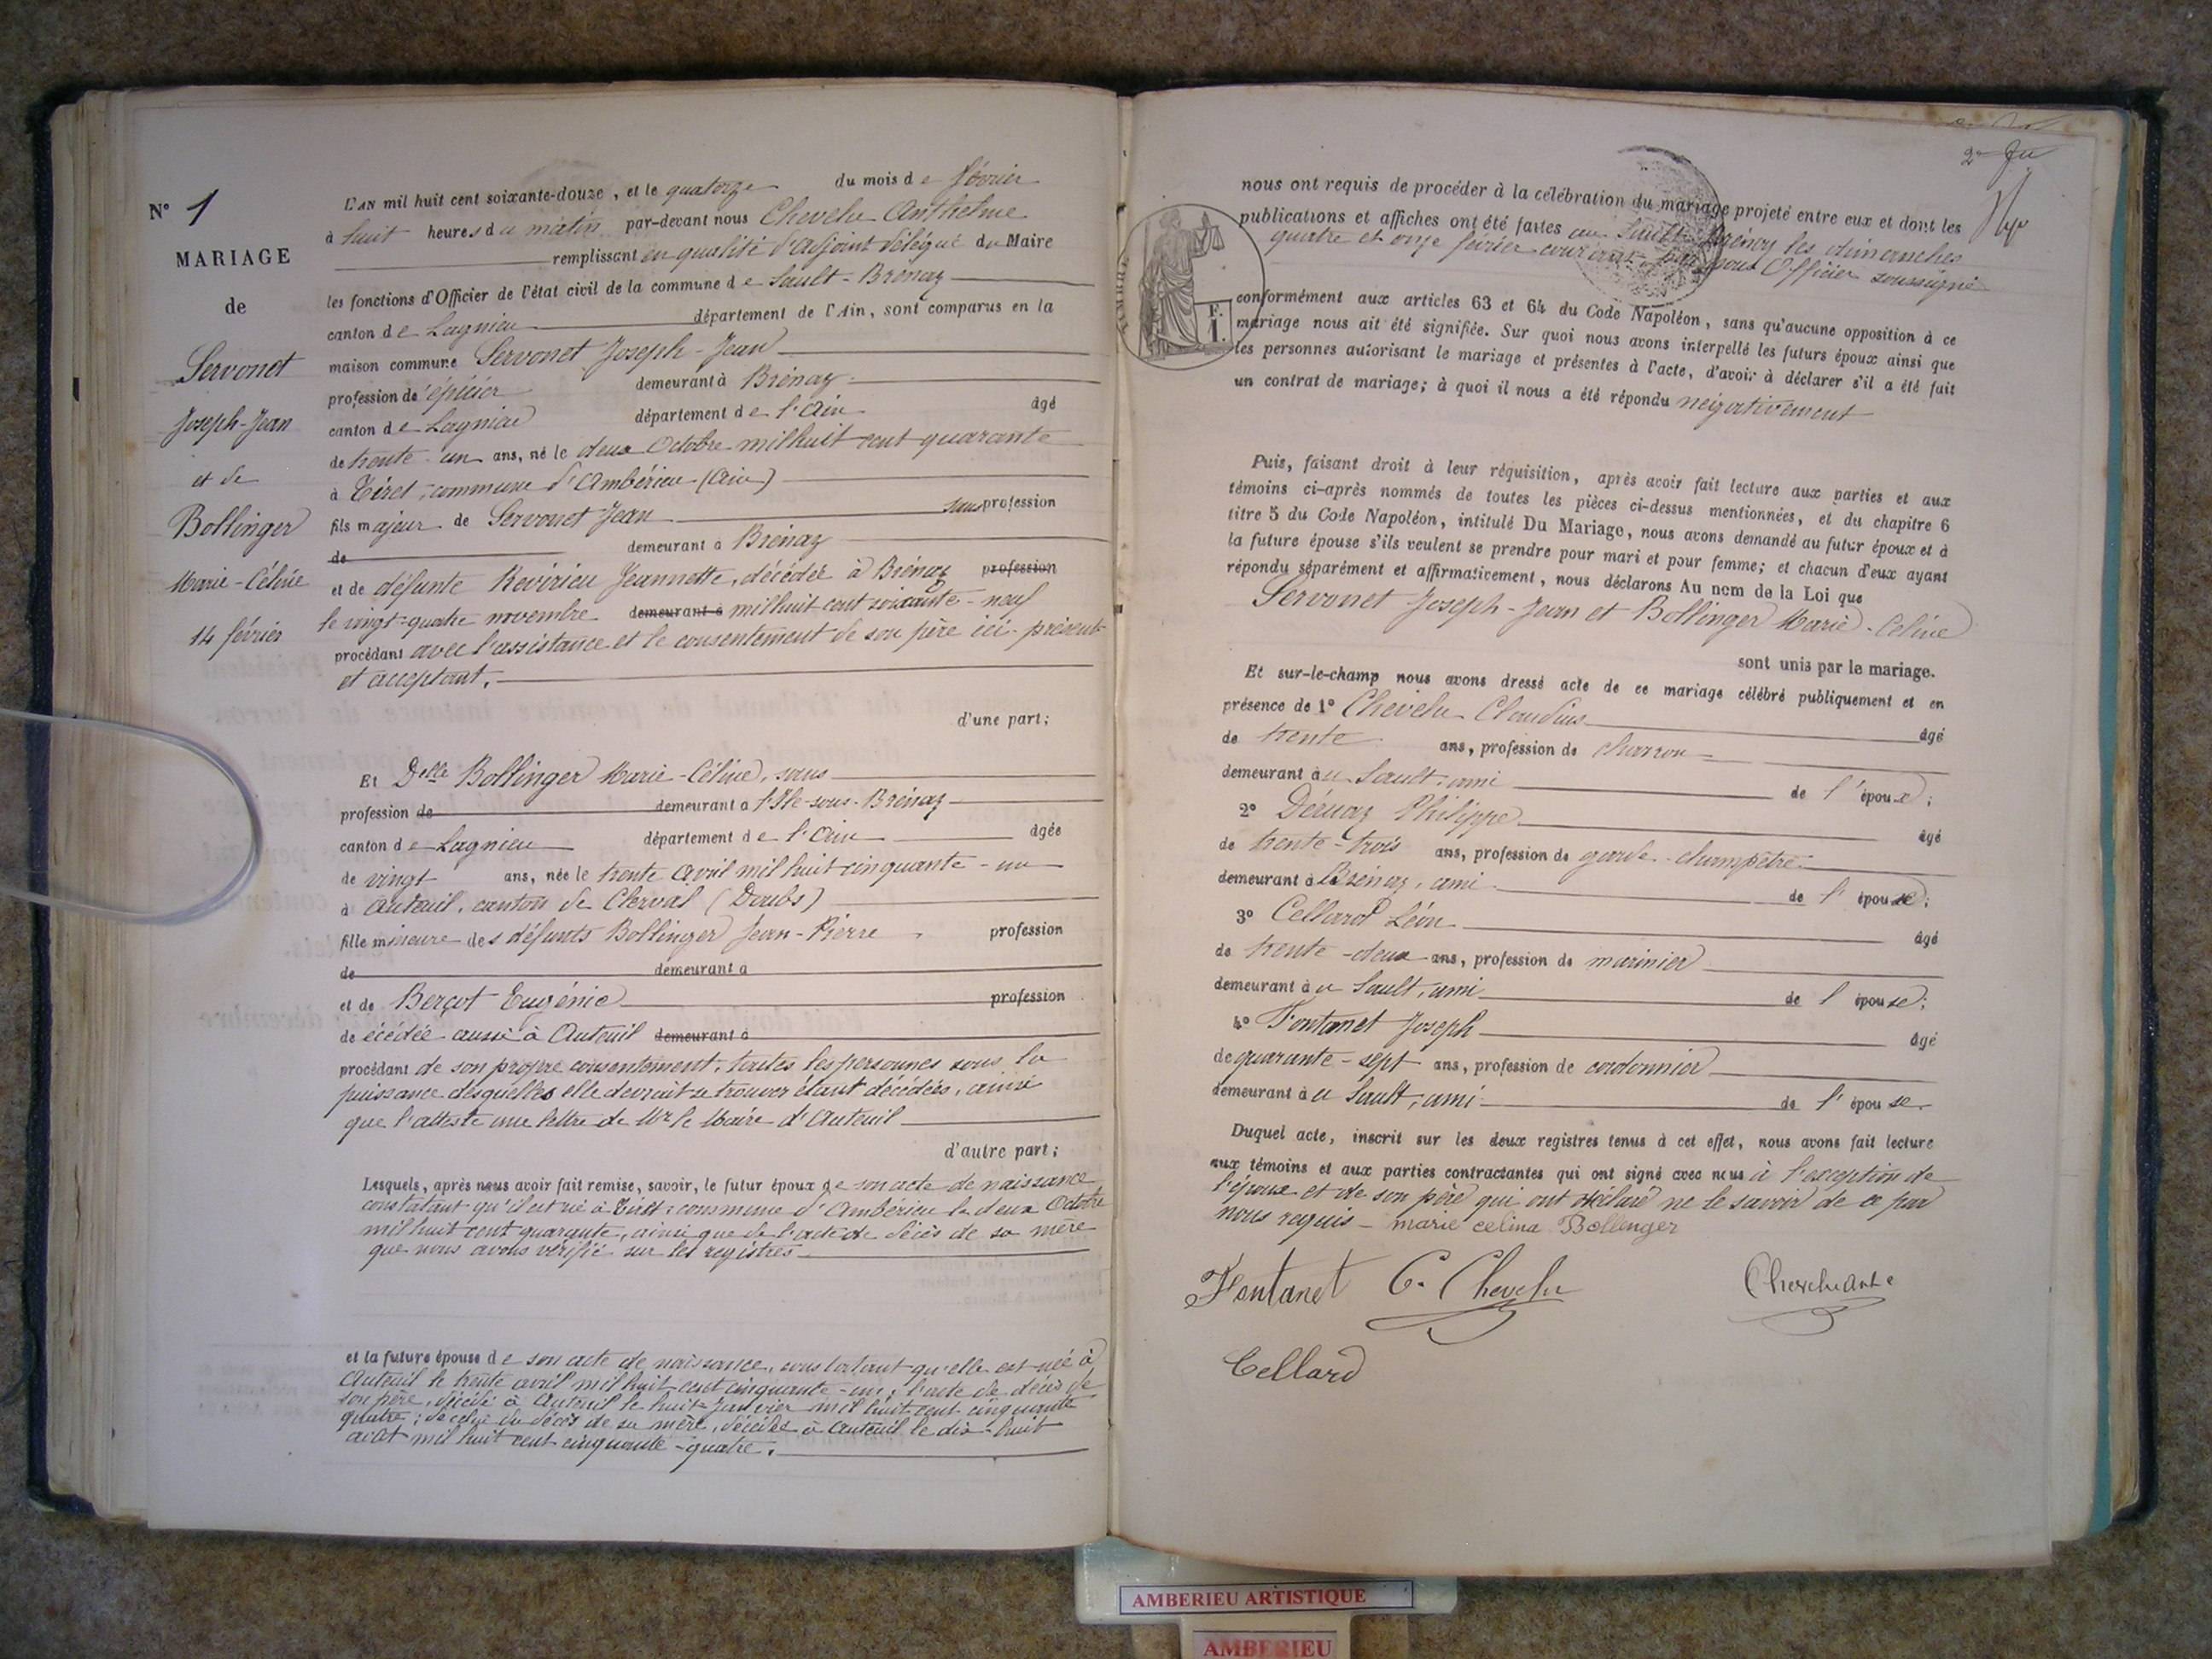 N° 1
MARIAGE
de
Servonet
Joseph-Jean
et de
Bollinger
Marie-Céline
14 février
L'AN mil huit cent soixante-douze, et le quatorze du mois de février
à huit heures du matin par-devant nous Chevelu Anthelme
remplissant en qualité d'adjoint délégué du Maire
les fonctions d'Officier de l'état civil de la commune de Sault-Brénaz
canton de Lagnieu département de l'Ain, sont comparus en la
maison commune Servonet Joseph-Jean
profession d'épicier demeurant à Brénaz
canton de Lagnieu département de l'Ain âgé
de trente-un ans, né le deux Octobre mil huit cent quarante
à Tiret, commune d'Ambérieu (Ain)
fils majeur de Servonet Jean sans profession
de demeurant à Brénaz
et de défunte Revirieu Jeannette, décédée à Brénaz profession
le vingt-quatre novembre demeurant à mil huit cent soixante-neuf
procédant avec l'assistance et le consentement de son père ici présent
et acceptant.
d'une part;
Et Delle Bollinger Marie-Céline, sans
profession de demeurant à l'Ile-sous-Brénaz
canton de Lagnieu département de l'Ain âgée
de vingt ans, née le trente avril mil huit cinquante-un
à Auteuil, canton de Clerval (Doubs)
fille mineure des défunts Bollinger Jean-Pierre profession
de demeurant à
et de Berçot Eugénie profession
de écédée aussi à Auteuil demeurant à
procédant de son propre consentement, toutes les personnes sous la
puissance desquelles elle devrait se trouver étant décédées, ainsi
que l'atteste une lettre de Mr le Maire d'Auteuil
d'autre part;
Lesquels, après nous avoir fait remise, savoir, le futur époux de son acte de naissance
constatant qu'il est né à Tiret, commune d'Ambérieu le deux Octobre
mil huit cent quarante, ainsi que de l'acte de décès de sa mère
que nous avons vérifié sur les registres
et la future épouse de son acte de naissance, constatant qu'elle est née à
Auteuil le trente avril mil huit cent cinquante-un; l'acte de décès de
son père, décédé à Auteuil le huit Janvier mil huit cent cinquante
quatre; de celui du décès de sa mère, décédée à Auteuil le dix-huit
août mil huit cent cinquante-quatre.
nous ont requis de procéder à la célébration du mariage projeté entre eux et dont les
publications et affiches ont été faites au Sault-Brénaz les dimanches
quatre et onze février courant par nous Officier soussigné
conformément aux articles 63 et 64 du Code Napoléon, sans qu'aucune opposition à ce
mariage nous ait été signifiée. Sur quoi nous avons interpellé les futurs époux ainsi que
les personnes autorisant le mariage et présentes à l'acte, d'avoir à déclarer s'il a été fait
un contrat de mariage; à quoi il nous a été répondu négativement
Puis, faisant droit à leur réquisition, après avoir fait lecture aux parties et aux
témoins ci-après nommés de toutes les pièces ci-dessus mentionnées, et du chapitre 6
titre 5 du Code Napoléon, intitulé Du Mariage, nous avons demandé au futur époux et à
la future épouse s'ils veulent se prendre pour mari et pour femme; et chacun d'eux ayant
répondu séparément et affirmativement, nous déclarons Au nom de la Loi que
Servonet Joseph-Jean et Bollinger Marie-Céline
sont unis par le mariage.
Et sur-le-champ nous avons dressé acte de ce mariage célébré publiquement et en
présence de 1° Chevelu Claudius âgé
de trente ans, profession de charron
demeurant au Sault, ami de l'époux;
2° Déruaz Philippe âgé
de trente-trois ans, profession de garde-champêtre
demeurant à Brénaz, ami de l'épouse;
3° Cellard Léon âgé
de trente-deux ans, profession de marinier
demeurant au Sault, ami de l'épouse;
4° Fontanet Joseph âgé
de quarante-sept ans, profession de cordonnier
demeurant au Sault, ami de l'épouse.
Duquel acte, inscrit sur les deux registres tenus à cet effet, nous avons fait lecture
aux témoins et aux parties contractantes qui ont signé avec nous à l'exception de
l'époux et de son père qui ont déclaré ne le savoir de ce par
nous requis - marie celina Bollenger
Fontanet C. Chevelu
Cellard
AMBERIEU ARTISTIQUE
AMBERIEU